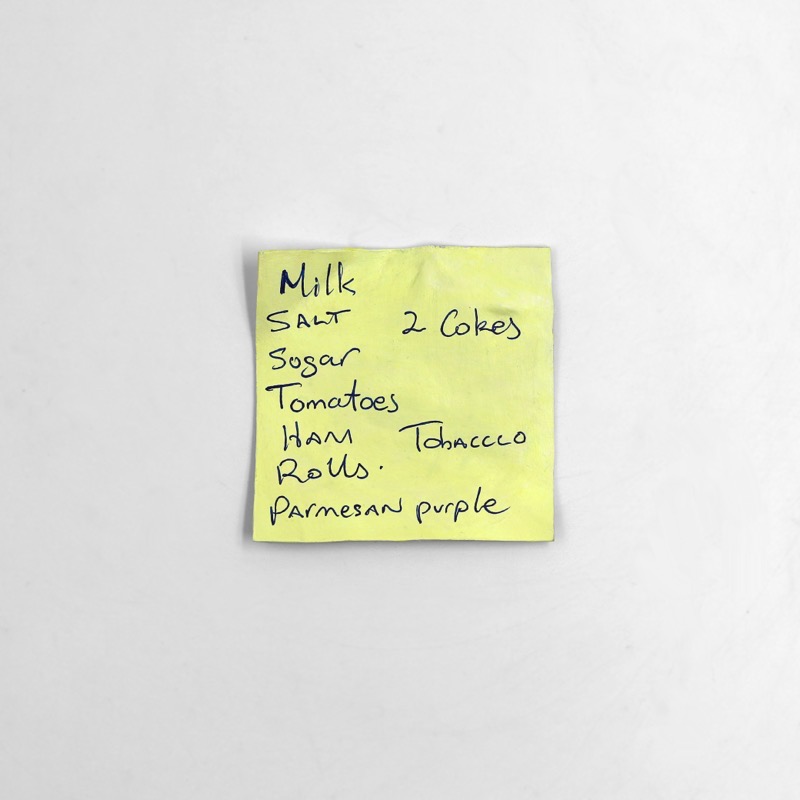 Milk
SALT 2 Cokes
Sogar
Tomatoes
HAM Tobaccco
Rolls.
Parmesan purple